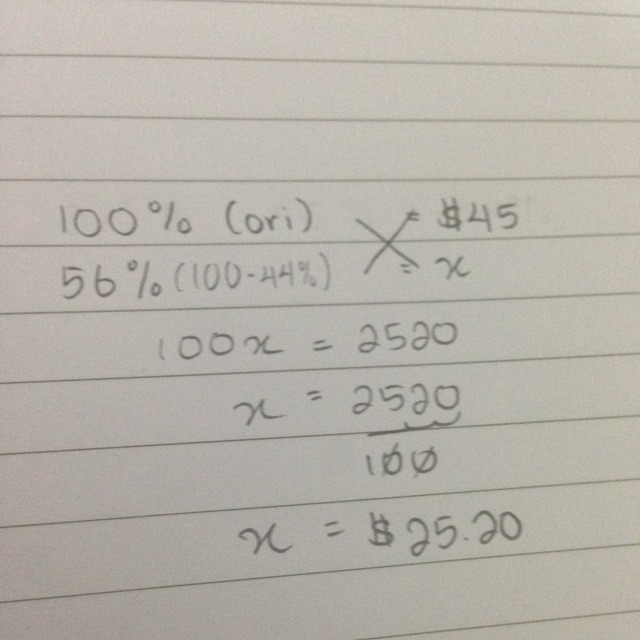 100% (ori) = $45
56% (100-44%) = x
100x = 2520
x = 2520
100
x = $25.20